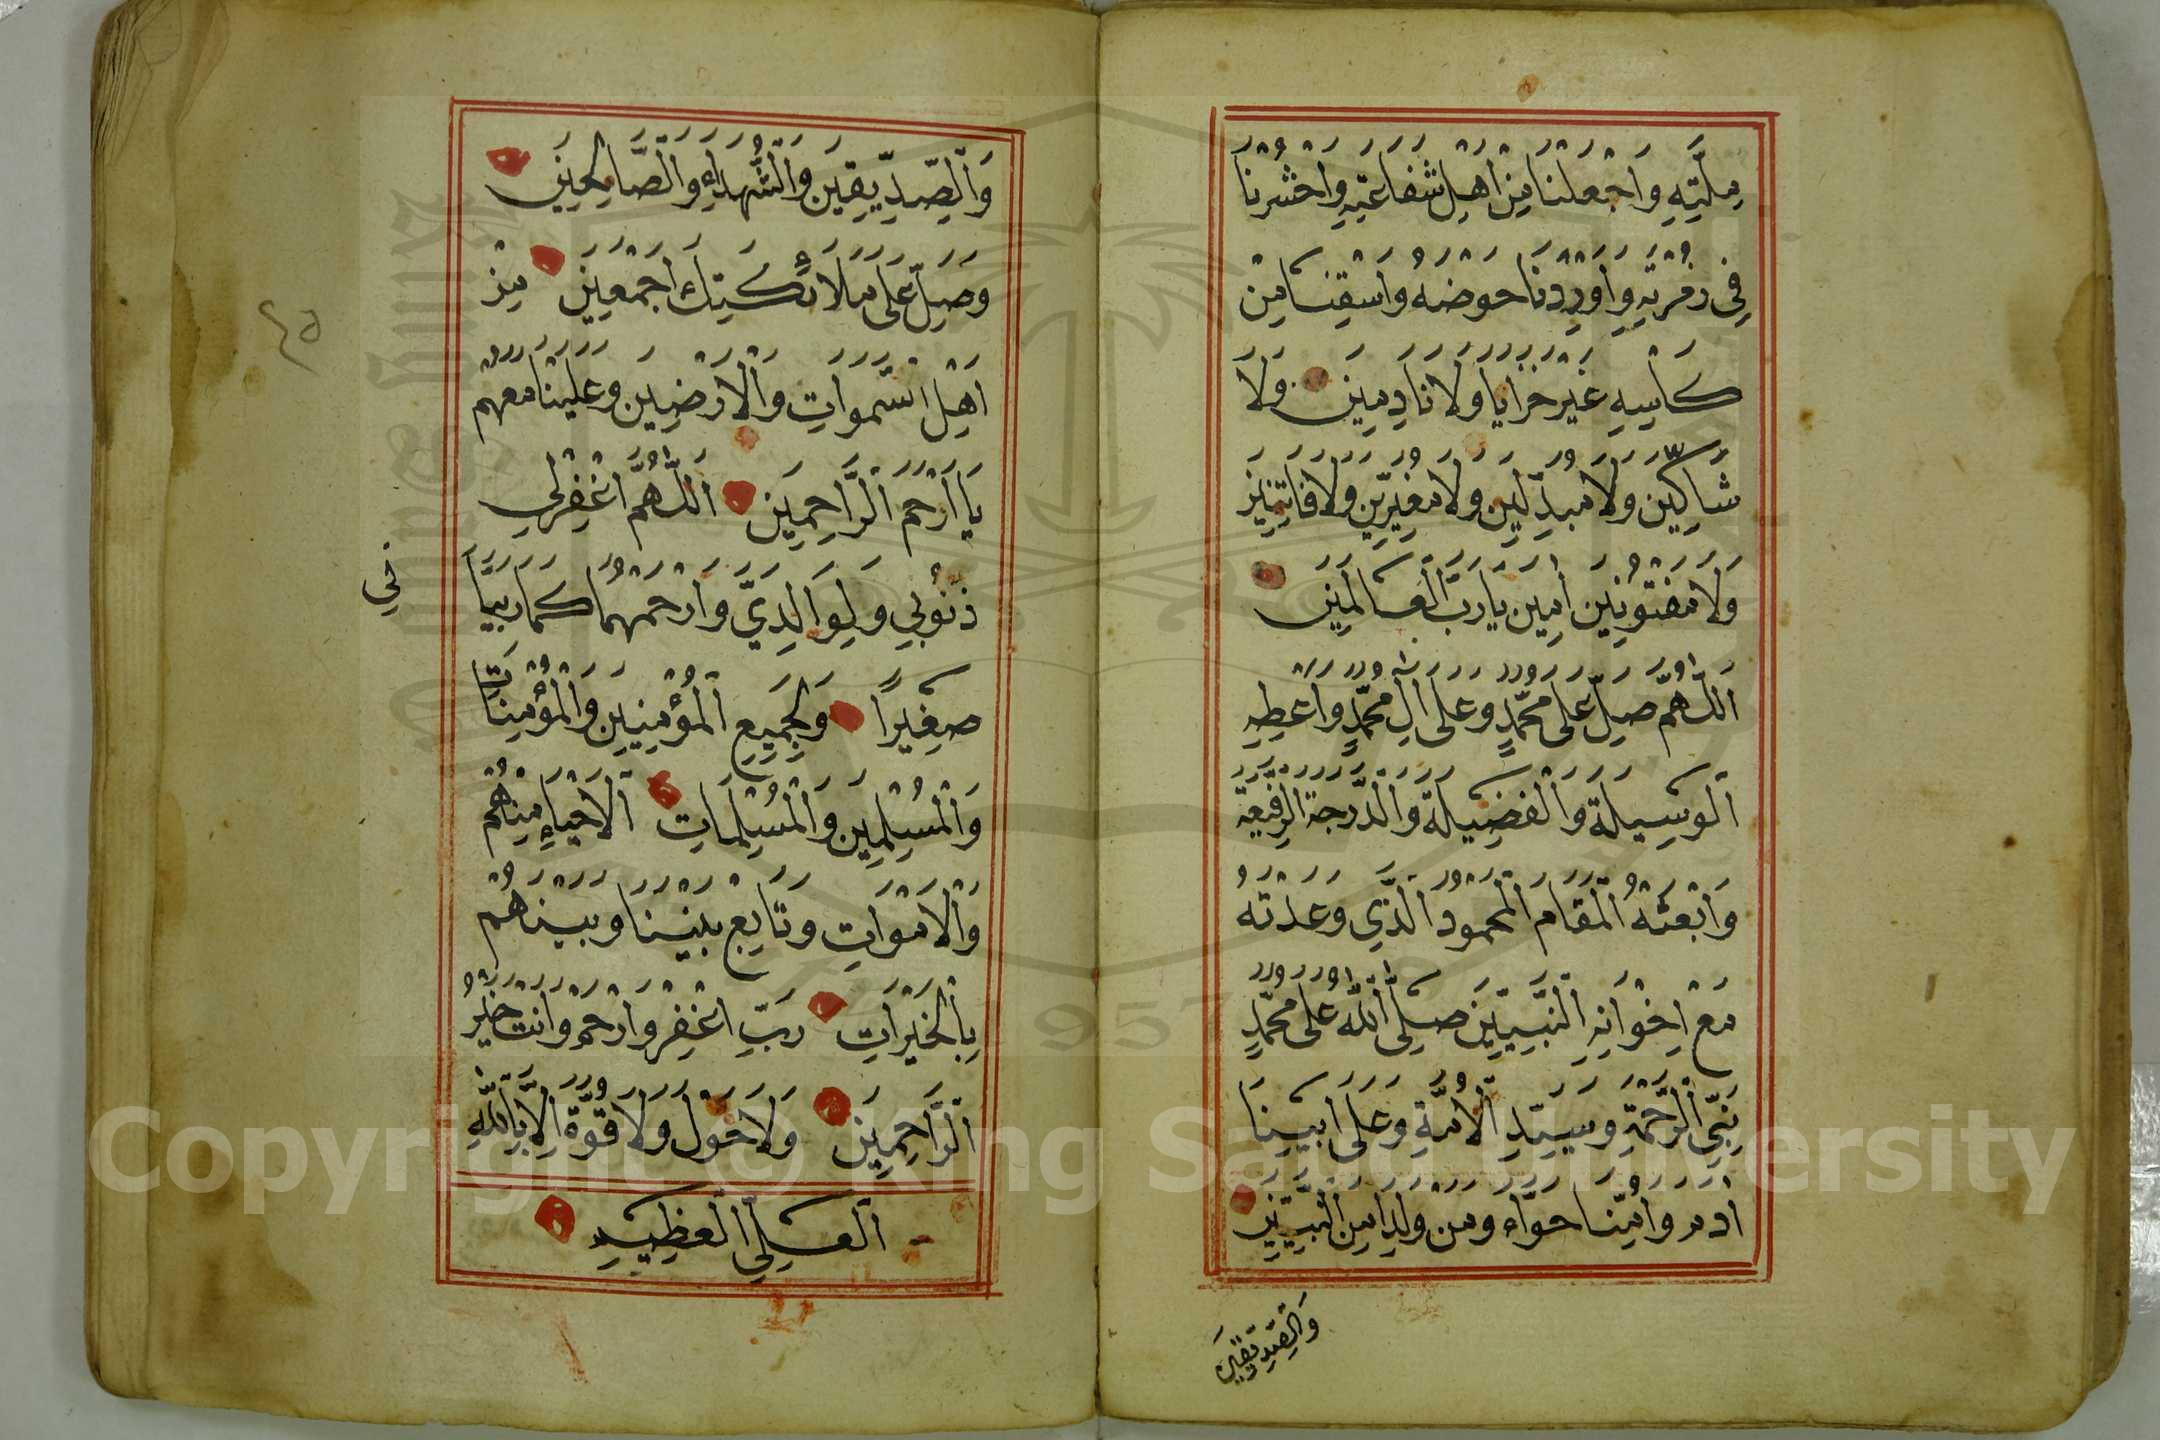 مِلَّتِهِ وَاجْعَلْنَا مِنْ اَهْلِ شَفَاعَتِهِ وَاحْشُرْنَا
فِي زُمْرَتِهِ وَاَوْرِدْنَا حَوْضَهُ وَاسْقِنَا مِنْ
كَأْسِهِ غَيْرَ خَزَايَا وَلَا نَادِمِينَ وَلَا
شَاكِّينَ وَلَا مُبَدِّلِينَ وَلَا مُغَيِّرِينَ وَلَا فَاتِنِينَ
وَلَا مَفْتُونِينَ اٰمِينَ يَارَبَّ الْعَالَمِينَ
اَللّٰهُمَّ صَلِّ عَلَى مُحَمَّدٍ وَعَلَى اٰلِ مُحَمَّدٍ وَاَعْطِهِ
الْوَسِيلَةَ وَالْفَضِيلَةَ وَالدَّرَجَةَ الرَّفِيعَةَ
وَابْعَثْهُ الْمَقَامَ الْمَحْمُودَ الَّذِي وَعَدْتَهُ
مَعَ اِخْوَانِهِ النَّبِيِّينَ صَلَّى اللّٰهُ عَلَى مُحَمَّدٍ
نَبِيِّ الرَّحْمَةِ وَسَيِّدِ الْاُمَّةِ وَعَلَى اَبِينَا
اٰدَمَ وَاُمِّنَا حَوَّاءَ وَمَنْ وَلَدَا مِنَ النَّبِيِّينَ
وَالصِّدِّيقِينَ
وَالصِّدِّيقِينَ وَالشُّهَدَاءِ وَالصَّالِحِينَ
وَصَلِّ عَلَى مَلَائِكَتِكَ اَجْمَعِينَ مِنْ
اَهْلِ السَّمَوَاتِ وَالْاَرَضِينَ وَعَلَيْنَا مَعَهُمْ
يَا اَرْحَمَ الرَّاحِمِينَ اَللّٰهُمَّ اغْفِرْ لِي
ذُنُوبِي وَلِوَالِدَيَّ وَارْحَمْهُمَا كَمَا رَبَّيَا
فِي
صَغِيرًا وَلِجَمِيعِ الْمُؤْمِنِينَ وَالْمُؤْمِنَاتِ
وَالْمُسْلِمِينَ وَالْمُسْلِمَاتِ الْاَحْيَاءِ مِنْهُمْ
وَالْاَمْوَاتِ وَتَابِعْ بَيْنَنَا وَبَيْنَهُمْ
بِالْخَيْرَاتِ رَبِّ اغْفِرْ وَارْحَمْ وَاَنْتَ خَيْرُ
الرَّاحِمِينَ وَلَا حَوْلَ وَلَا قُوَّةَ اِلَّا بِاللّٰهِ
الْعَلِيِّ الْعَظِيمِ
٤٥
Copyright © King Saud University